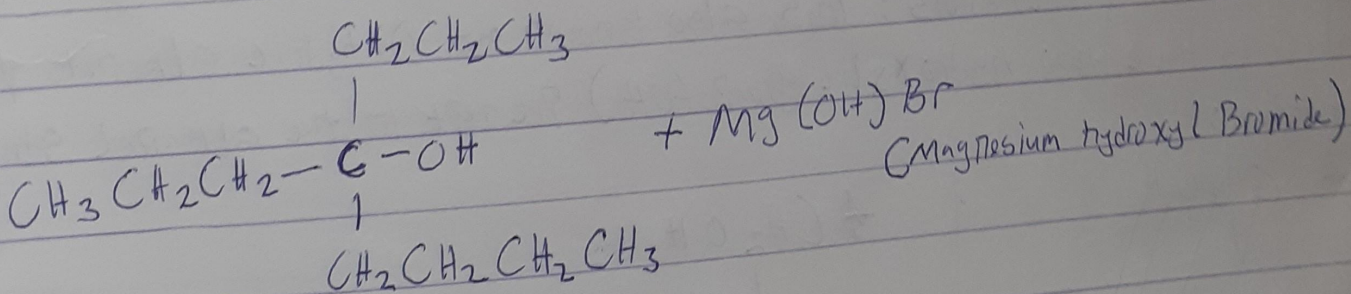 CH₂CH₂CH₃
|
CH₃CH₂CH₂ – C – OH + Mg(OH)Br
(Magnesium hydroxyl Bromide)
|
CH₂CH₂CH₂CH₃